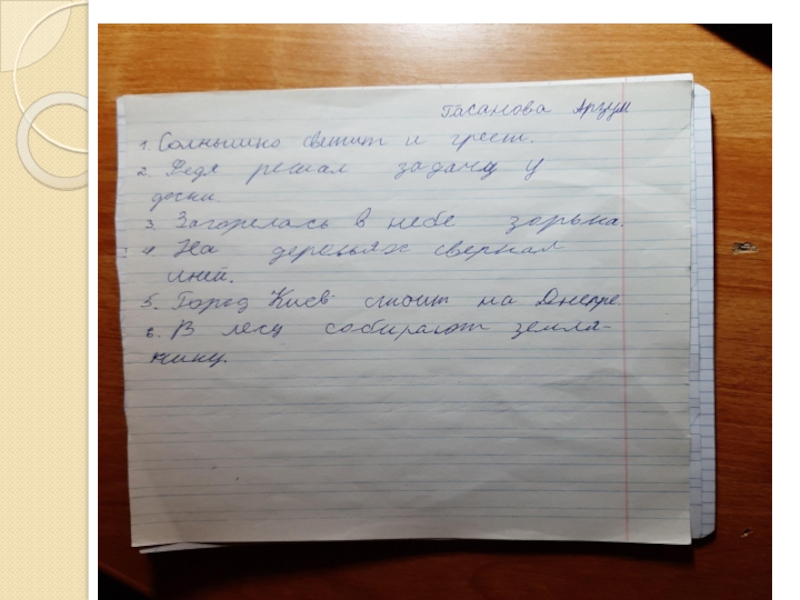 Гасанова Арзум
1. Солнышко светит и греет.
2. Федя решал задачу у
доски.
3. Загорелась в небе зорька.
4. На деревьях сверкал
иней.
5. Город Киев стоит на Днепре.
6. В лесу собирают земля-
нику.